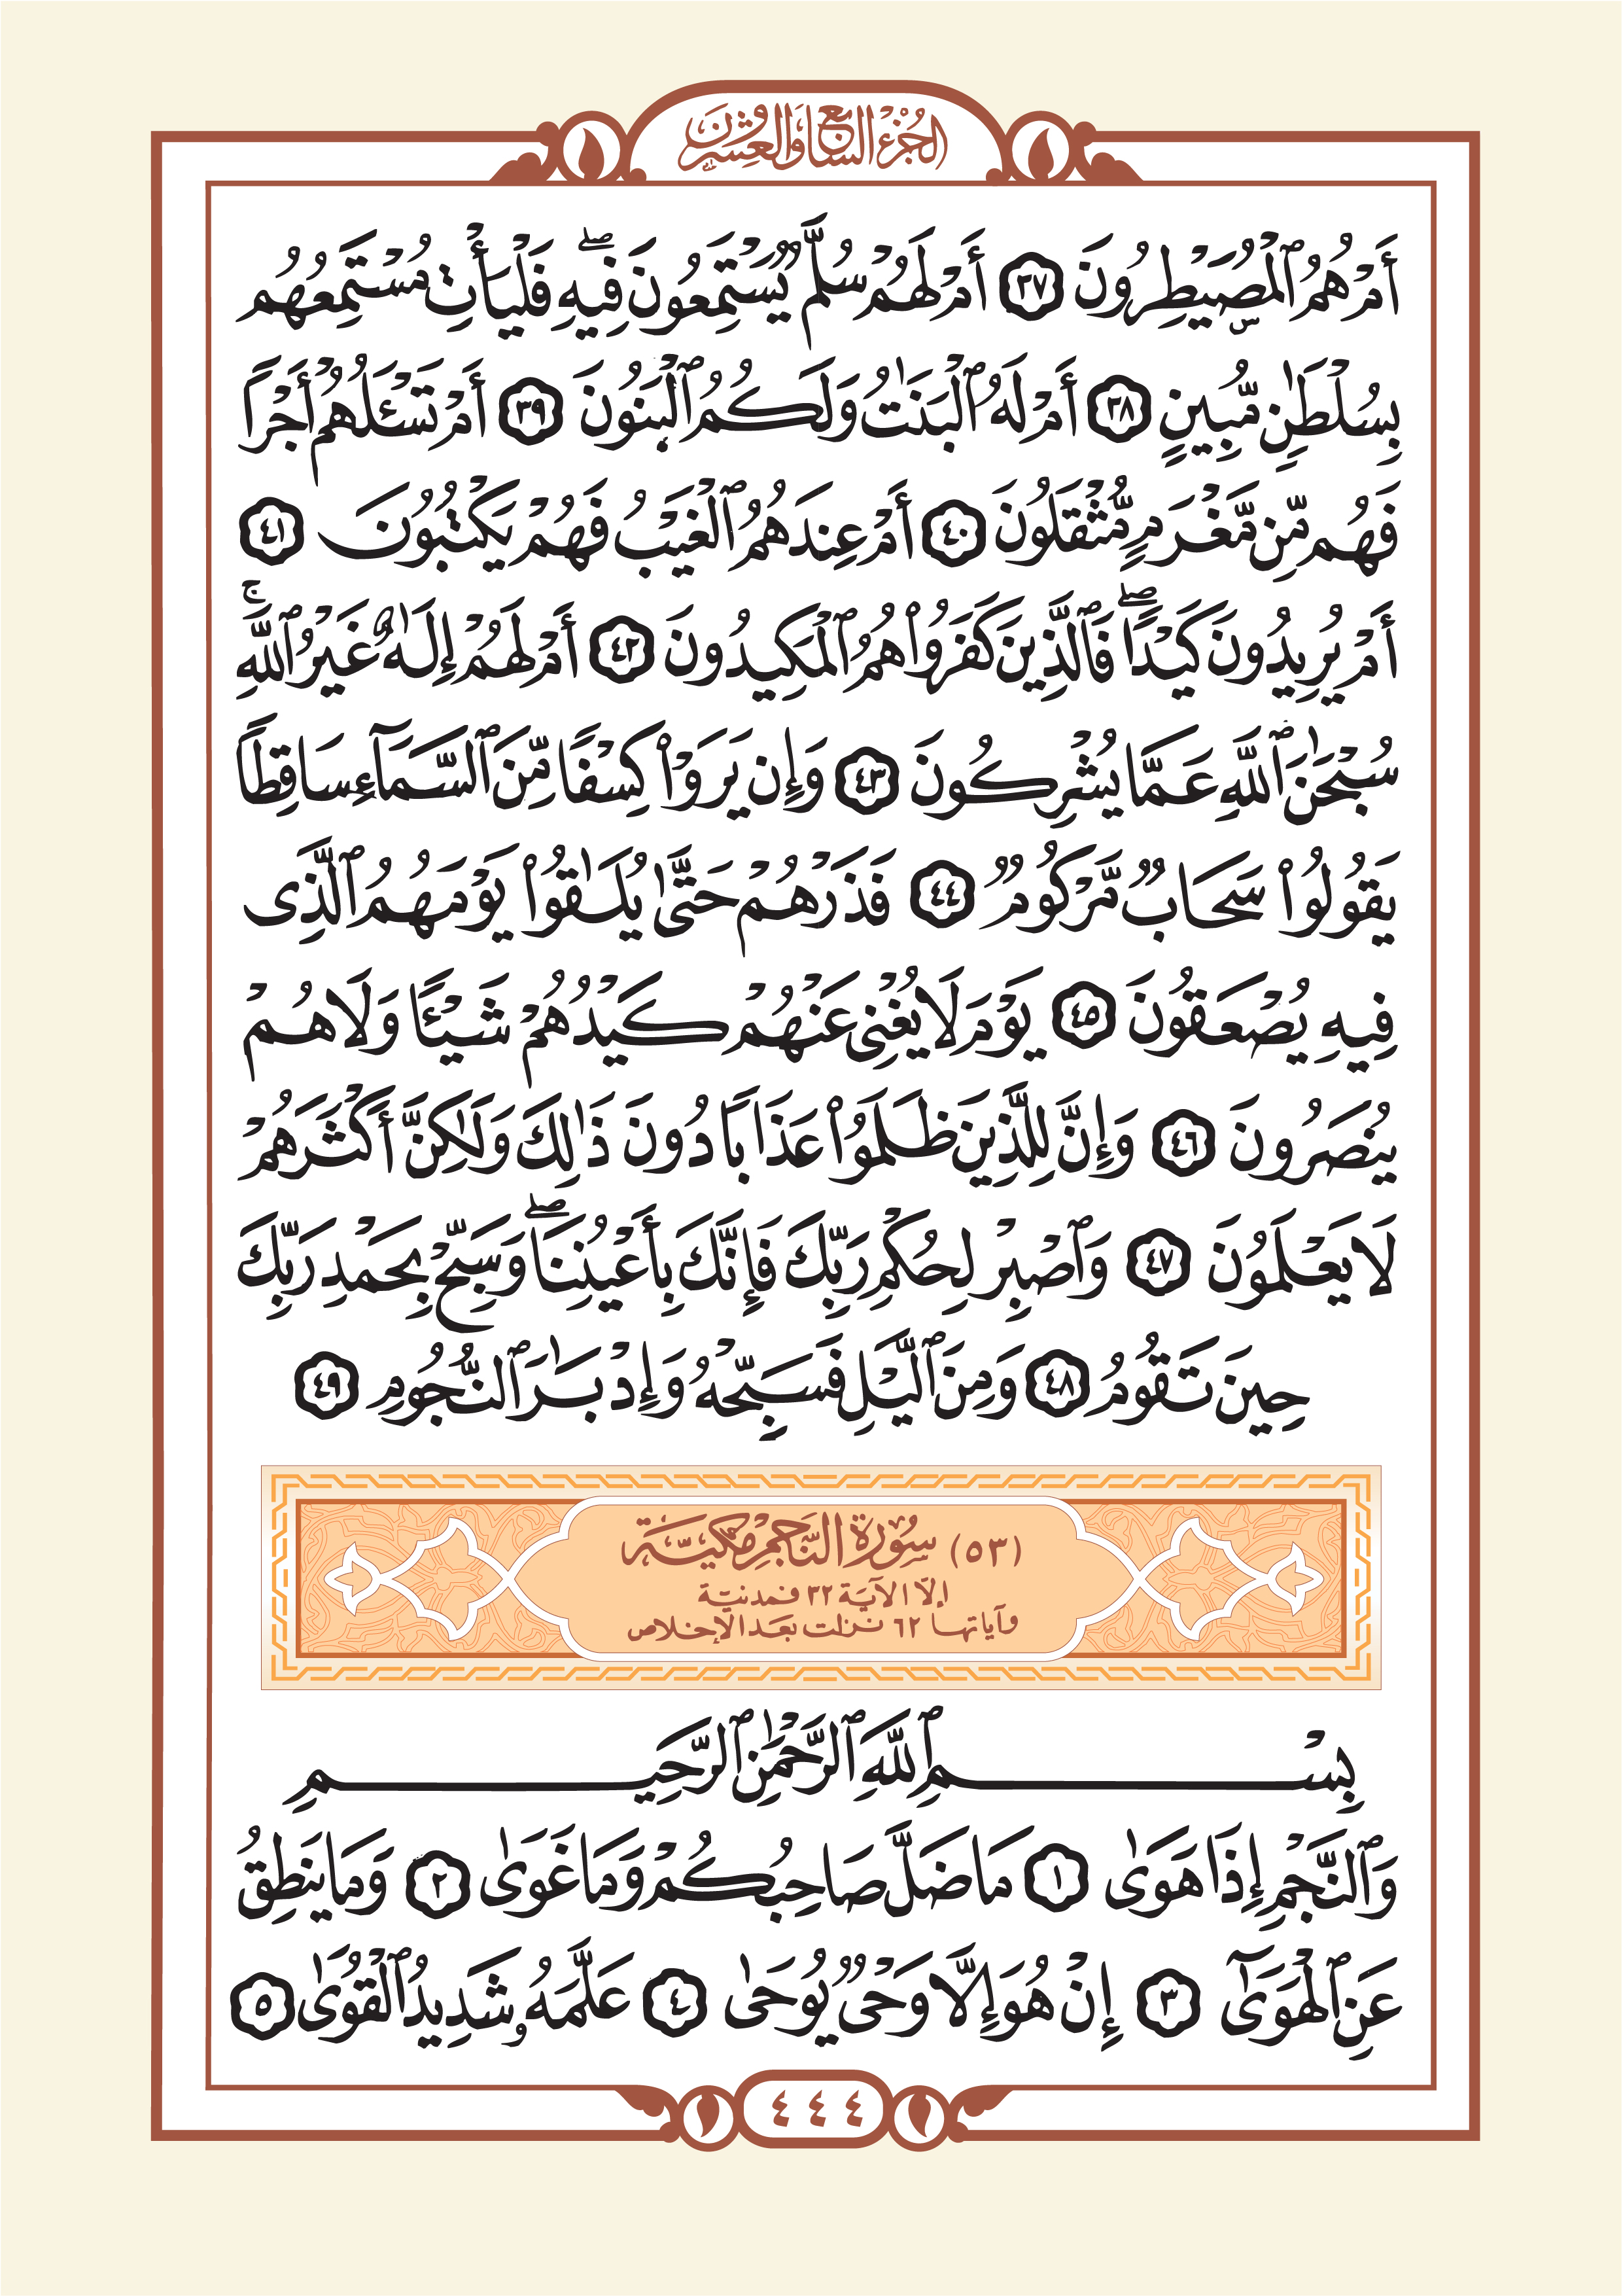 الجزء السابع والعشرون
أَمْ هُمُ ٱلْمُصَۣيْطِرُونَ ٣٧ أَمْ لَهُمْ سُلَّمٌ يَسْتَمِعُونَ فِيهِ ۖ فَلْيَأْتِ مُسْتَمِعُهُم
بِسُلْطَٰنٍ مُّبِينٍ ٣٨ أَمْ لَهُ ٱلْبَنَٰتُ وَلَكُمُ ٱلْبَنُونَ ٣٩ أَمْ تَسْـَٔلُهُمْ أَجْرًا
فَهُم مِّن مَّغْرَمٍ مُّثْقَلُونَ ٤٠ أَمْ عِندَهُمُ ٱلْغَيْبُ فَهُمْ يَكْتُبُونَ ٤١
أَمْ يُرِيدُونَ كَيْدًا ۖ فَٱلَّذِينَ كَفَرُوا۟ هُمُ ٱلْمَكِيدُونَ ٤٢ أَمْ لَهُمْ إِلَٰهٌ غَيْرُ ٱللَّهِ ۚ
سُبْحَٰنَ ٱللَّهِ عَمَّا يُشْرِكُونَ ٤٣ وَإِن يَرَوْا۟ كِسْفًا مِّنَ ٱلسَّمَآءِ سَاقِطًا
يَقُولُوا۟ سَحَابٌ مَّرْكُومٌ ٤٤ فَذَرْهُمْ حَتَّىٰ يُلَٰقُوا۟ يَوْمَهُمُ ٱلَّذِى
فِيهِ يُصْعَقُونَ ٤٥ يَوْمَ لَا يُغْنِى عَنْهُمْ كَيْدُهُمْ شَيْـًٔا وَلَا هُمْ
يُنصَرُونَ ٤٦ وَإِنَّ لِلَّذِينَ ظَلَمُوا۟ عَذَابًا دُونَ ذَٰلِكَ وَلَٰكِنَّ أَكْثَرَهُمْ
لَا يَعْلَمُونَ ٤٧ وَٱصْبِرْ لِحُكْمِ رَبِّكَ فَإِنَّكَ بِأَعْيُنِنَا ۖ وَسَبِّحْ بِحَمْدِ رَبِّكَ
حِينَ تَقُومُ ٤٨ وَمِنَ ٱلَّيْلِ فَسَبِّحْهُ وَإِدْبَٰرَ ٱلنُّجُومِ ٤٩
(٥٣) سُورَة النَّجْمِ مَكيّة
إلّا الآية ٣٢ فمدنيّة
وآياتها ٦٢ نزلت بعد الإخلاص
بِسْمِ ٱللَّهِ ٱلرَّحْمَٰنِ ٱلرَّحِيمِ
وَٱلنَّجْمِ إِذَا هَوَىٰ ١ مَا ضَلَّ صَاحِبُكُمْ وَمَا غَوَىٰ ٢ وَمَا يَنطِقُ
عَنِ ٱلْهَوَىٰٓ ٣ إِنْ هُوَ إِلَّا وَحْىٌ يُوحَىٰ ٤ عَلَّمَهُۥ شَدِيدُ ٱلْقُوَىٰ ٥
٤٤٤